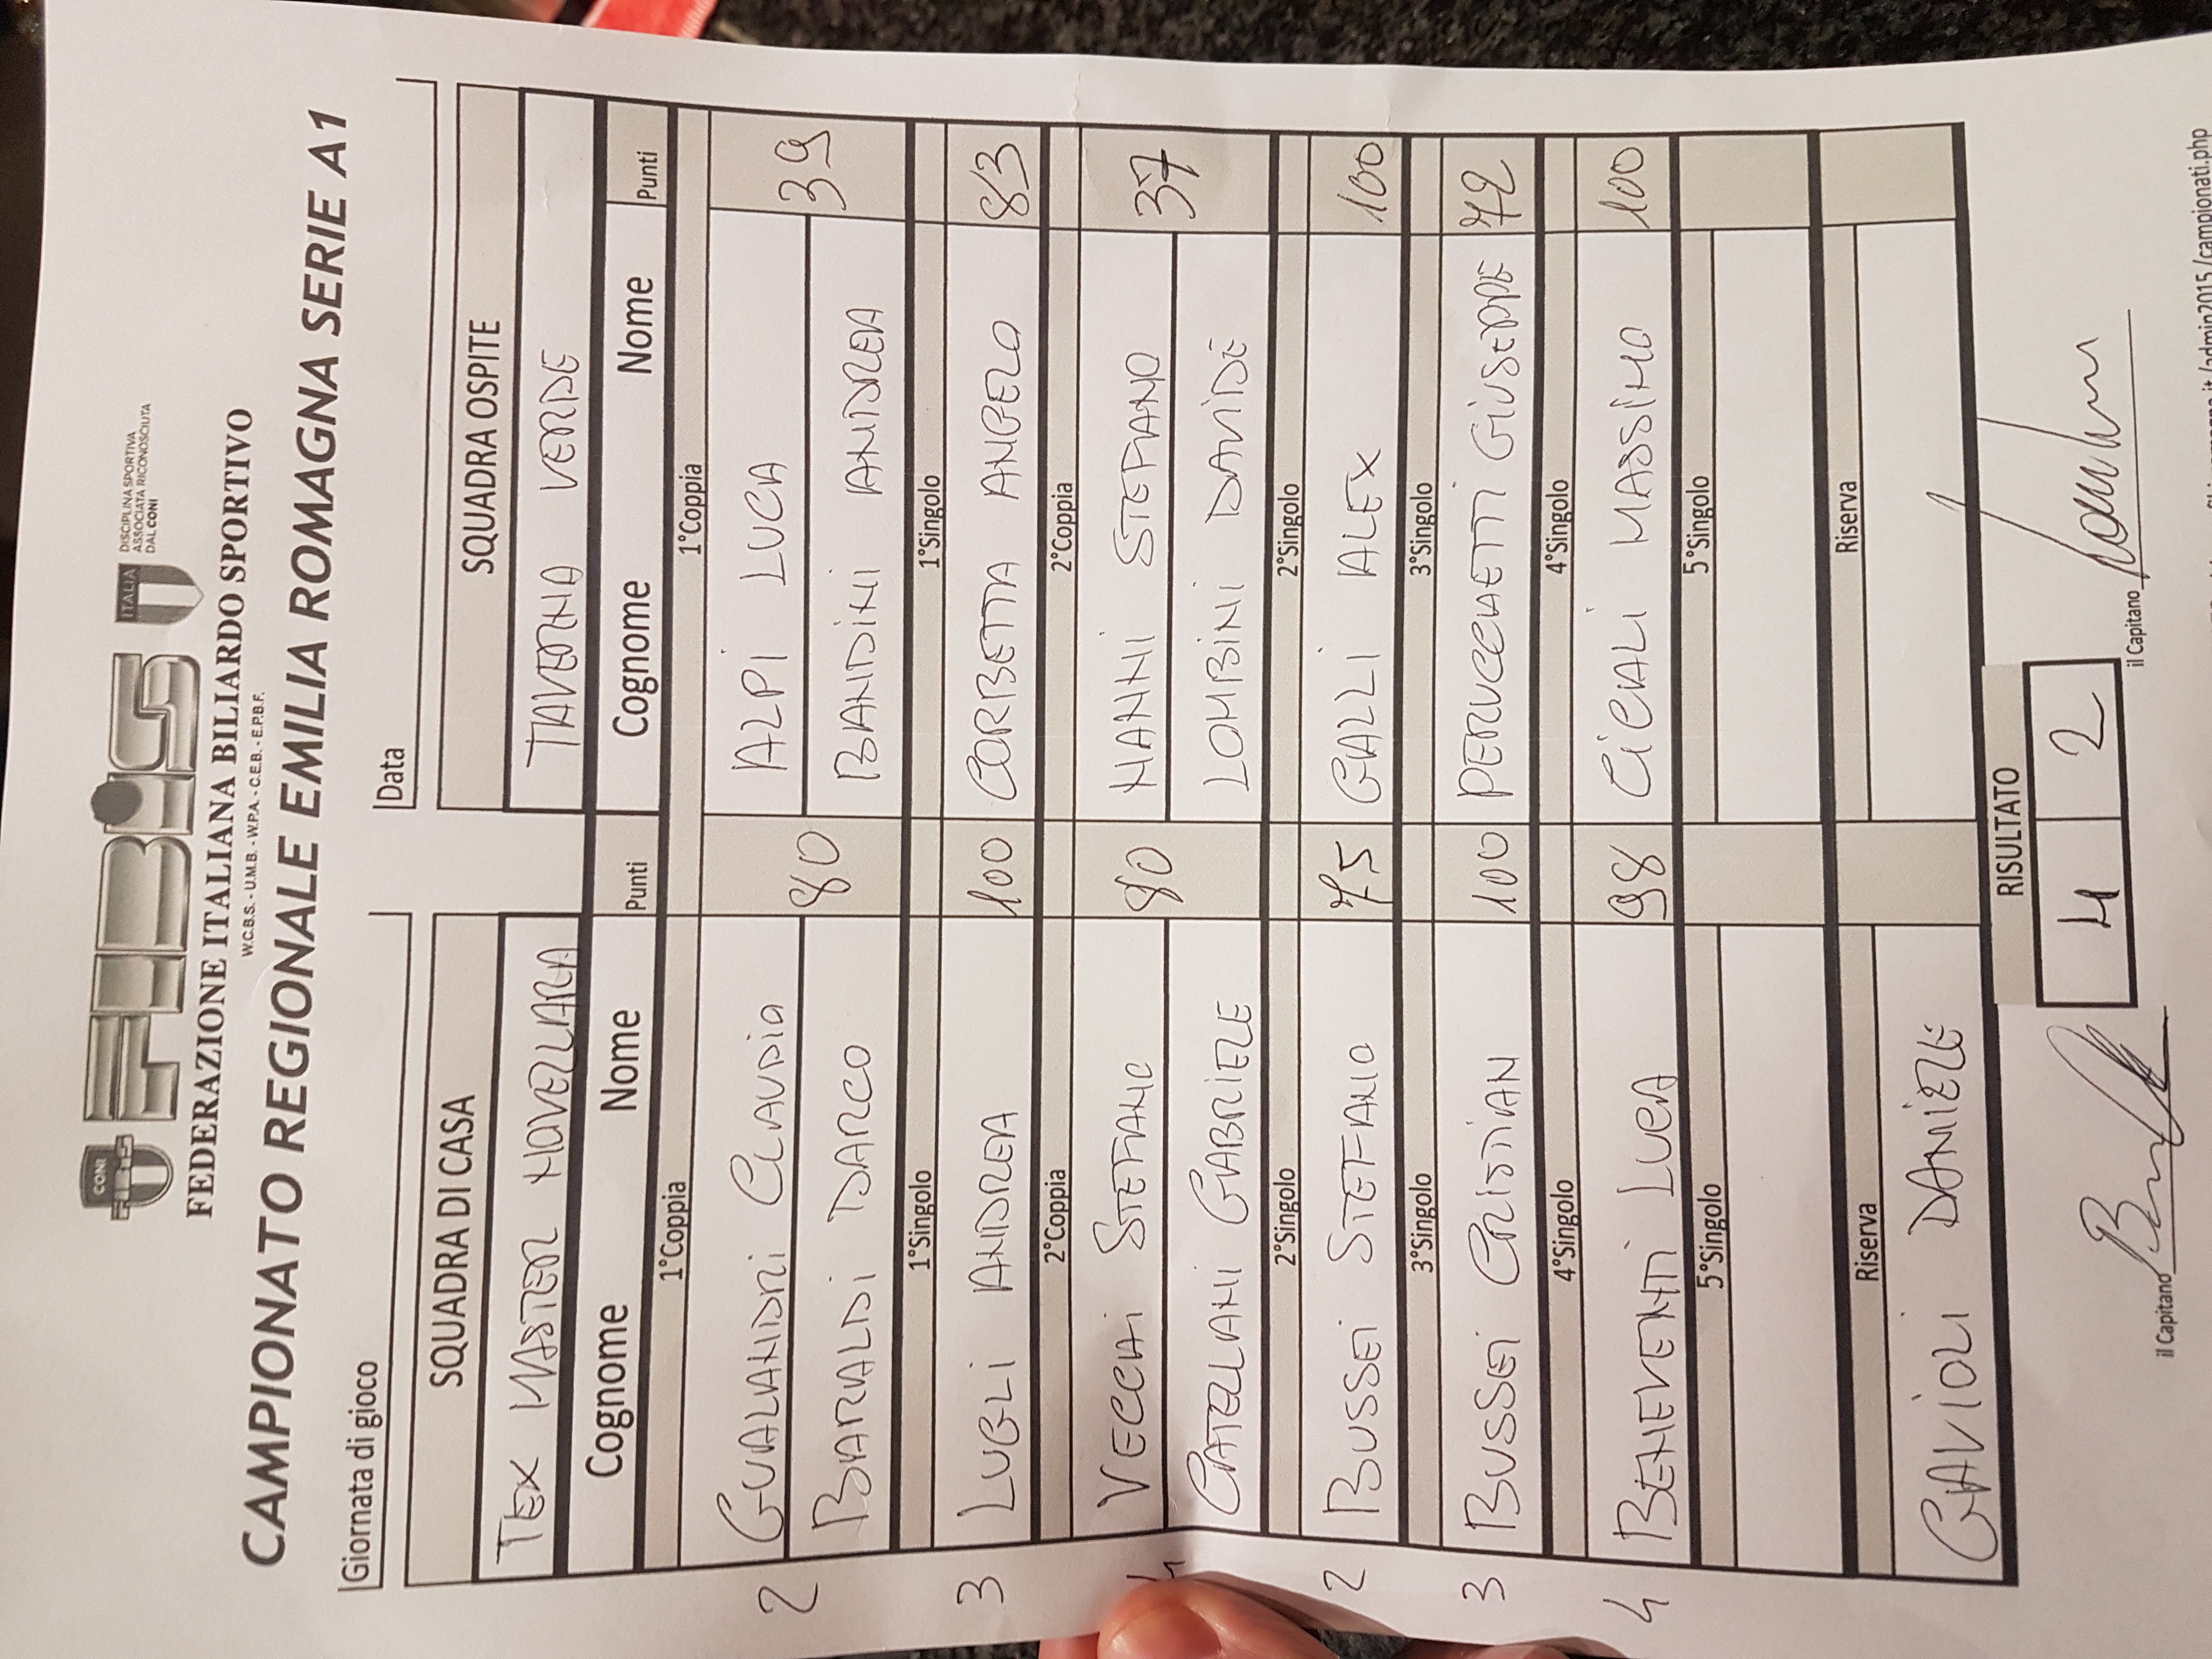 CONI
FIBiS
ITALIA
DISCIPLINA SPORTIVA
ASSOCIATA RICONOSCIUTA
DAL CONI
FEDERAZIONE ITALIANA BILIARDO SPORTIVO
W.C.B.S. - U.M.B. - W.P.A. - C.E.B. - E.P.B.F.
CAMPIONATO REGIONALE EMILIA ROMAGNA SERIE A1
Giornata di gioco Data
SQUADRA DI CASA SQUADRA OSPITE
TEX MASTER NOVELLARA TAVERNA VERDE
Cognome Nome Punti Cognome Nome Punti
1°Coppia 1°Coppia
2 GUALANDRI CLAUDIO 80 ALPI LUCA 39
BARALDI DARCO BANDINI ANDREA
1°Singolo 1°Singolo
3 LUGLI ANDREA 100 CORBETTA ANGELO 83
2°Coppia 2°Coppia
VECCHI STEFANO 80 NANNI STEFANO 37
CATELLANI GABRIELE LOMBINI DAVIDE
2°Singolo 2°Singolo
2 BUSSEI STEFANO 75 GALLI ALEX 100
3°Singolo 3°Singolo
3 BUSSEI CRISTIAN 100 PERUCCHETTI GIUSEPPE 72
4°Singolo 4°Singolo
4 BENEVENTI LUCA 98 CICALI MASSIMO 100
5°Singolo 5°Singolo
Riserva Riserva
GAVIOLI DANIELE
RISULTATO
4 2
il Capitano il Capitano
/admin2015/campionati.php